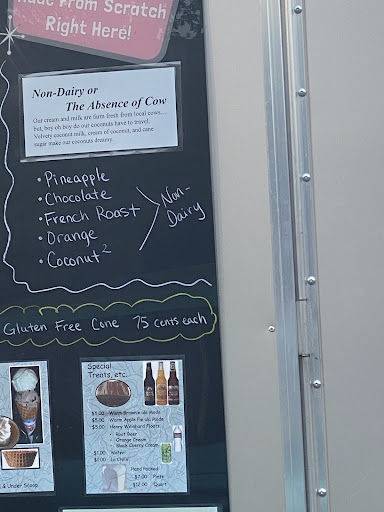 Made From Scratch
Right Here!
Non-Dairy or
The Absence of Cow
Our cream and milk are farm fresh from local cows....
but, boy oh boy do our coconuts have to travel.
Velvety coconut milk, cream of coconut, and cane
sugar make our coconuts dreamy.
• Pineapple
• Chocolate
• French Roast
• Orange
• Coconut²
Non-
Dairy
Gluten Free Cone 75 cents each
Special
Treats, etc.
Warm Brownie ala Mode
Warm Apple Pie ala Mode
Henry Weinhard Floats
• Root Beer
• Orange Cream
• Black Cherry Cream
$1.00 Water
Hand Packed
$7.00 Pint
$12.00 Quart
& Under Scoop